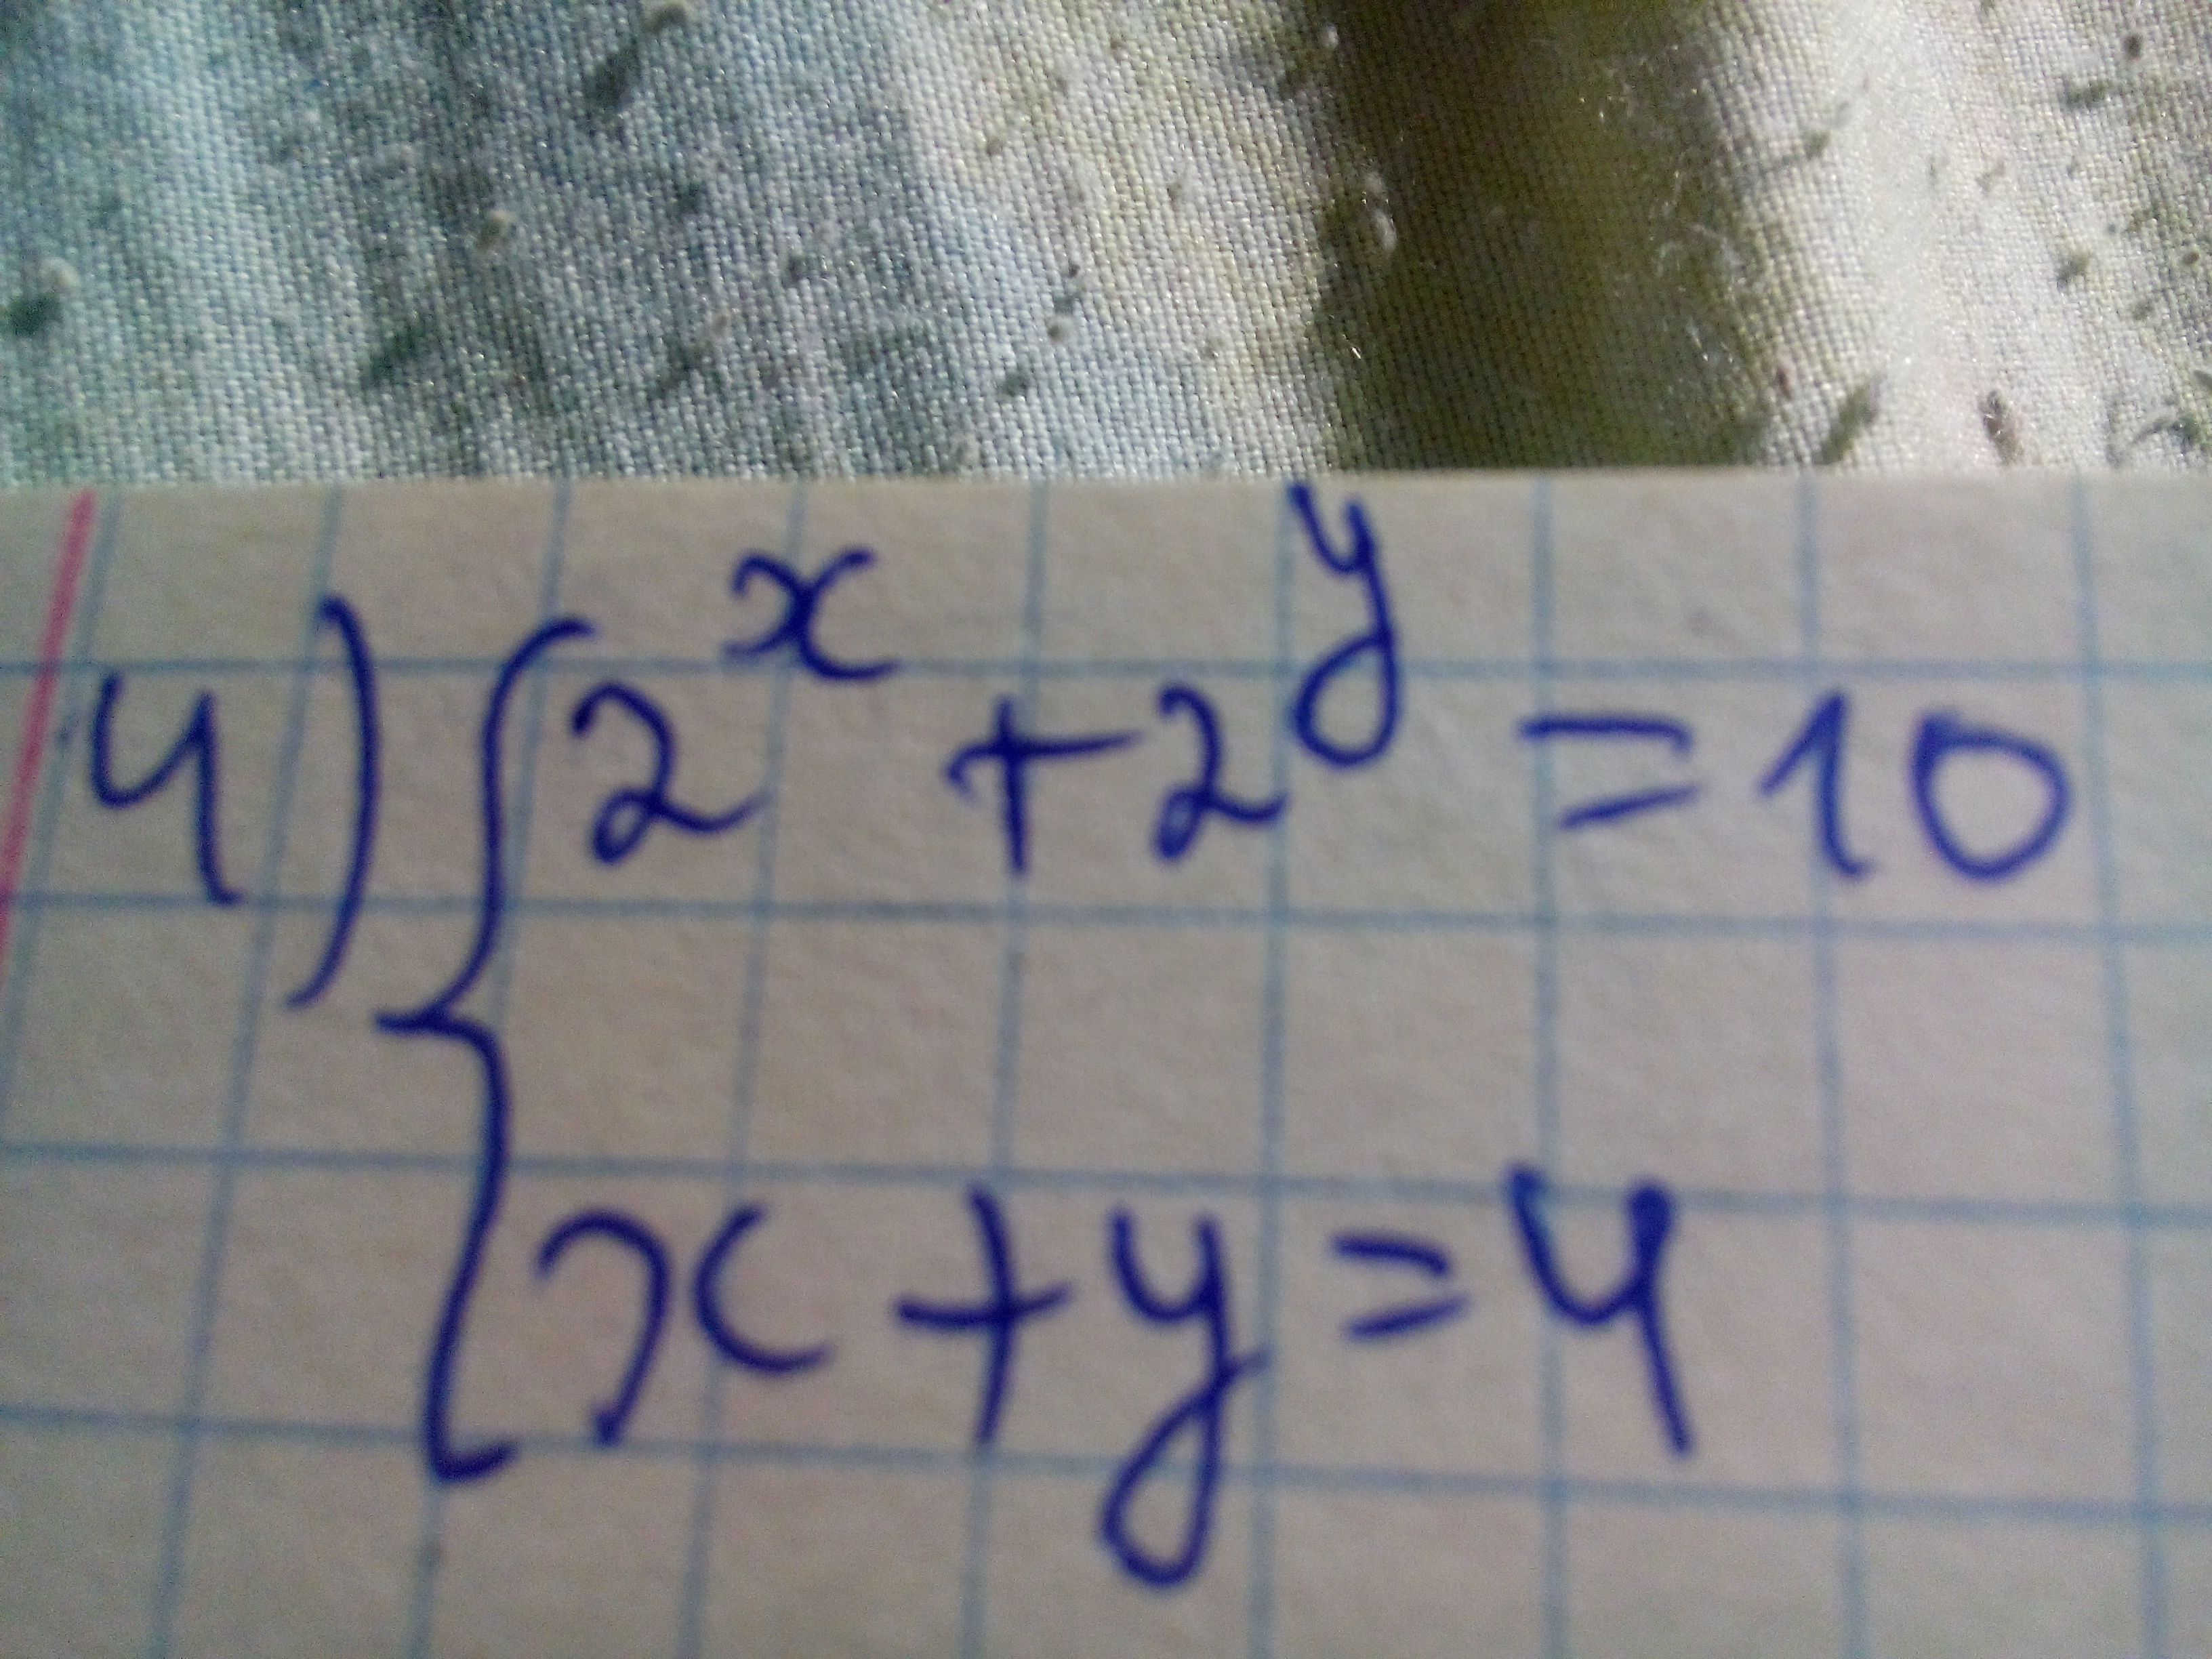 4) { 2^x + 2^y = 10
x + y = 4